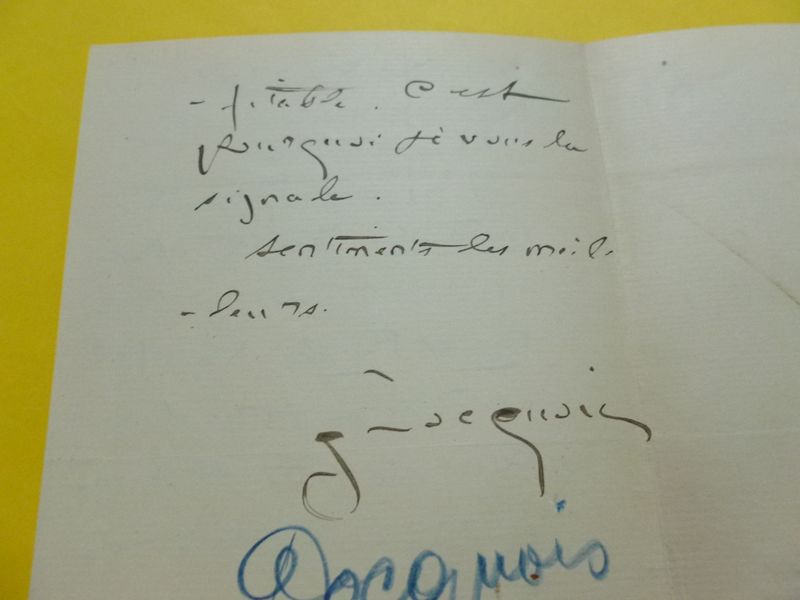 -fitable. C'est
pourquoi je vous la
signale.
sentiments les meil-
-leurs.
Jacquois
Jacquois